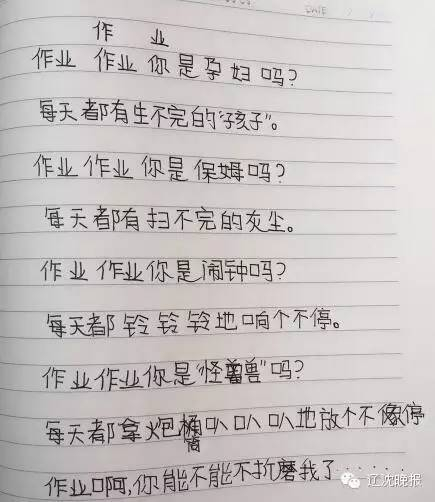 作 业
作业 作业 你是孕妇吗?
每天都有生不完的“孩子”。
作业 作业 你是保姆吗?
每天都有扫不完的灰尘。
作业 作业你是闹钟吗?
每天都铃铃铃地响个不停。
作业作业你是“怪兽”吗?
每天都拿火炮筒叭叭叭地放个不停
作业啊,你能不能不折磨我了······
辽沈晚报